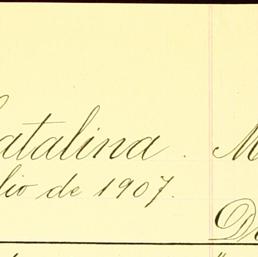 atalina. M
lio de 1907.
D